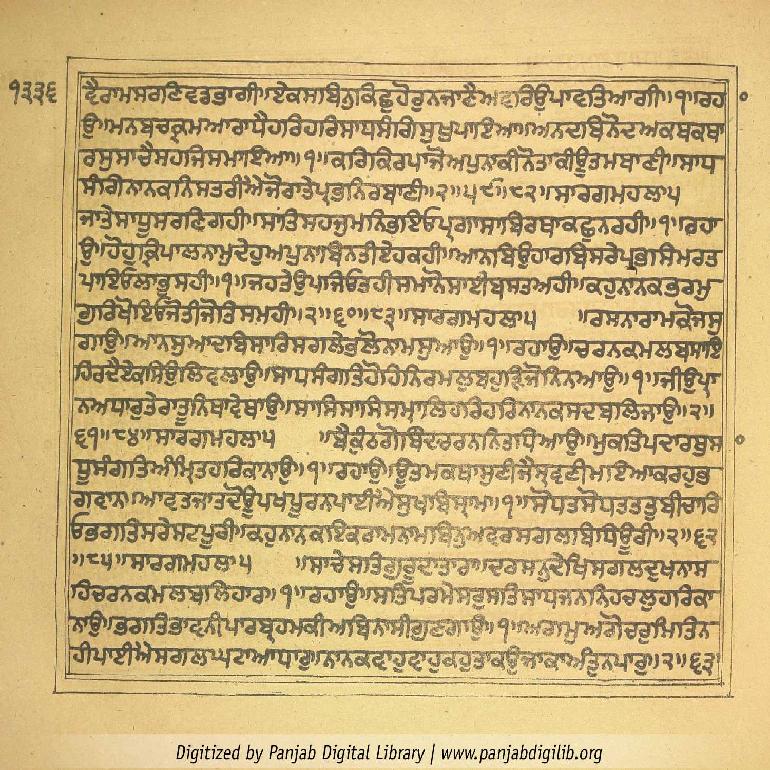 ੧੩੩੬
ਵੈਰਾਮਸਰਣਿਵਡਭਾਗੀ॥ਏਕਸਾਬਿਨੁਕਿਛੁਹੋਰੁਨਜਾਣੈਅਵਰਿਉਪਾਵਤਿਆਗੀ॥੧॥ਰਹ
ਉ॥ਮਨਬਚਕ੍ਰਮਆਰਾਧੈਹਰਿਹਰਿਸਾਧਸੰਗਿਸੁਖੁਪਾਇਆ॥ਅਨਦਬਿਨੋਦਅਕਥਕਥਾ
ਰਸੁਸਾਚੈਸਹਜਿਸਮਾਇਆ॥੧॥ਕਰਿਕਿਰਪਾਜੋਅਪੁਨਾਕੀਨੋਤਾਕੀਊਤਮਬਾਣੀ॥ਸਾਧ
ਸੰਗਿਨਾਨਕਨਿਸਤਰੀਐਜੋਰਾਤੇਪ੍ਰਭਨਿਰਬਾਣੀ॥੨॥੫੯॥੮੨॥ਸਾਰਗਮਹਲਾ੫
ਜਾਤੇਸਾਧੂਸਰਣਿਗਹੀ॥ਸਾਂਤਿਸਹਜੁਮਨਿਭਇਓਪ੍ਰਗਾਸਾਬਿਰਥਾਕਛੁਨਰਹੀ॥੧॥ਰਹਾ
ਉ॥ਹੋਹੁਕ੍ਰਿਪਾਲਨਾਮੁਦੇਹੁਅਪੁਨਾਬਿਨਤੀਏਹਕਹੀ॥ਆਨਬਿਉਹਾਰਬਿਸਰੇਪ੍ਰਭਸਿਮਰਤ
ਪਾਇਓਲਾਭੁਸਹੀ॥੧॥ਜਹਤੇਉਪਜਿਓਤਹੀਸਮਾਨੋਸਾਈਬਸਤੁਅਹੀ॥ਕਹੁਨਾਨਕਭਰਮੁ
ਗੁਰਿਖੋਇਓਜੋਤੀਜੋਤਿਸਮਹੀ॥੨॥੬੦॥੮੩॥ਸਾਰਗਮਹਲਾ੫ ॥ਰਸਨਾਰਾਮਕੋਜਸੁ
ਗਾਉ॥ਆਨਸੁਆਦਬਿਸਾਰਿਸਗਲੇਭਲੋਨਾਮਸੁਆਉ॥੧॥ਰਹਾਉ॥ਚਰਨਕਮਲਬਸਾਇ
ਹਿਰਦੈਏਕਸਿਉਲਿਵਲਾਉ॥ਸਾਧਸੰਗਤਿਹੋਹਿਨਿਰਮਲੁਬਹੁੜਿਜੋਨਿਨਆਉ॥੧॥ਜੀਉਪ੍ਰਾ
ਨਅਧਾਰੁਤੇਰਾਤੂਨਿਥਾਵੇਥਾਉ॥ਸਾਸਿਸਾਸਿਸਮ੍ਹਾਲਿਹਰਿਹਰਿਨਾਨਕਸਦਬਲਿਜਾਉ॥੨॥
੬੧॥੮੪॥ਸਾਰਗਮਹਲਾ੫ ॥ਬੈਕੁੰਠਗੋਬਿੰਦਚਰਨਨਿਤਧਿਆਉ॥ਮੁਕਤਿਪਦਾਰਥੁਸ
ਧੂਸੰਗਤਿਅੰਮ੍ਰਿਤਹਰਿਕਾਨਾਉ॥੧॥ਰਹਾਉ॥ਊਤਮਕਥਾਸੁਣੀਜੈਸ੍ਰਵਣੀਮਇਆਕਰਹੁਭ
ਗਵਾਨ॥ਆਵਤਜਾਤਦੋਊਪਖਪੂਰਨਪਾਈਐਸੁਖਬਿਸ੍ਰਾਮ॥੧॥ਸੋਧਤਸੋਧਤਤਤੁਬੀਚਾਰਿ
ਓਭਗਤਿਸਰੇਸਟਪੂਰੀ॥ਕਹੁਨਾਨਕਇਕਰਾਮਨਾਮਬਿਨੁਅਵਰਸਗਲਬਿਧਿਊਰੀ॥੨॥੬੨
॥੮੫॥ਸਾਰਗਮਹਲਾ੫ ॥ਸਾਚੇਸਤਿਗੁਰੂਦਾਤਾਰਾ॥ਦਰਸਨੁਦੇਖਿਸਗਲਦੁਖਨਾਸ
ਹਿਚਰਨਕਮਲਬਲਿਹਾਰਾ॥੧॥ਰਹਾਉ॥ਸਤਿਪਰਮੇਸਰੁਸਤਿਸਾਧਜਨਨਿਹਚਲੁਹਰਿਕਾ
ਨਾਉ॥ਭਗਤਿਭਾਵਨੀਪਾਰਬ੍ਰਹਮਕੀਅਬਿਨਾਸੀਗੁਣਗਾਉ॥੧॥ਅਗਮੁਅਗੋਚਰੁਮਿਤਿਨ
ਹੀਪਾਈਐਸਗਲਘਟਾਆਧਾਰੁ॥ਨਾਨਕਵਾਹੁਵਾਹੁਕਹੁਤਾਕਉਜਾਕਾਅੰਤੁਨਪਾਰੁ॥੨॥੬੩
Digitized by Panjab Digital Library | www.panjabdigilib.org